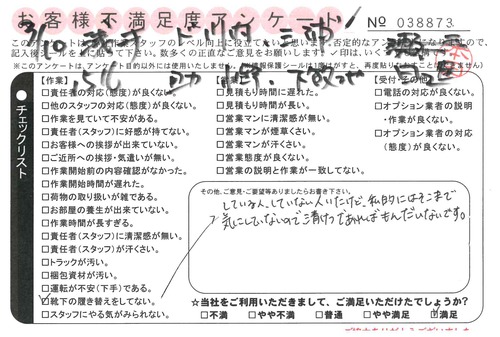 お客様不満足度アンケート
№ 038873
チェックリスト
【作業】
□責任者の対応(態度)が良くない。
□他のスタッフの対応(態度)が良くない。
□作業を見ていて不安がある。
□責任者(スタッフ)に好感が持てない。
□お客様への挨拶が出来ていない。
□ご近所への挨拶・気遣いが無い。
□作業開始前の内容確認がなかった。
□作業開始時間が遅れた。
□荷物の取り扱いが雑である。
□お部屋の養生が出来ていない。
□作業時間が長すぎる。
□責任者(スタッフ)に清潔感が無い。
□責任者(スタッフ)が汗くさい。
□トラックが汚い。
□梱包資材が汚い。
□運転が不安(下手)である。
□靴下の履き替えをしてない。
□スタッフにやる気がみられない。
【営業】
□見積もり時間に遅れた。
□見積もり時間が長い。
□営業マンに清潔感が無い。
□営業マンが煙草くさい。
□営業マンが汗くさい。
□営業態度が良くない。
□営業の説明と作業が一致してない。
【受付・その他】
□電話の対応が良くない。
□オプション業者の説明・作業が良くない。
□オプション業者の対応(態度)が良くない。
その他、ご意見・ご要望等ありましたらお書き下さい。
している人、していない人いたけど、私的にはそこまで
気にしていないので清けつであればもんだいないです。
☆当社をご利用いただきまして、ご満足いただけたでしょうか?
□不満 □やや不満 □普通 □やや満足 □満足